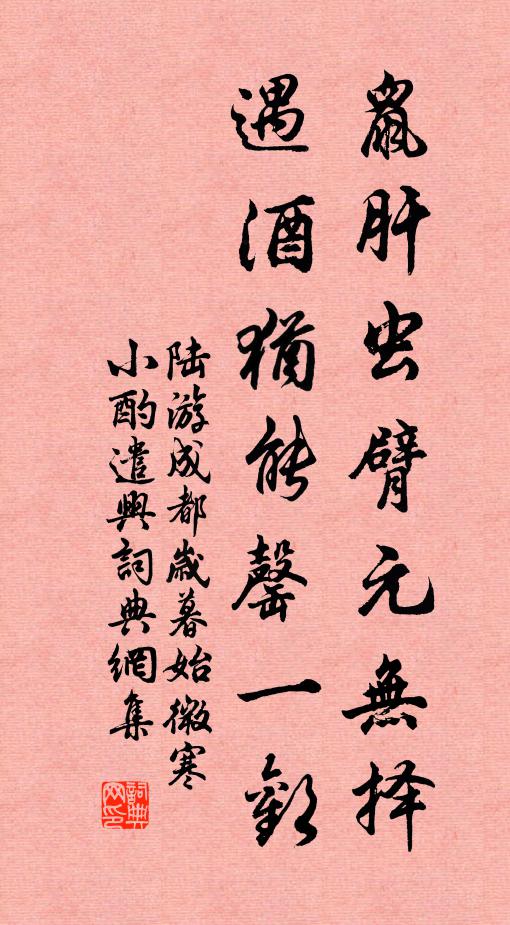 鼠肝虫臂元無择
遇酒猶能罄一歡
陆游成都歲暮始微寒
小酌遣興詞典網集
詞典
网印